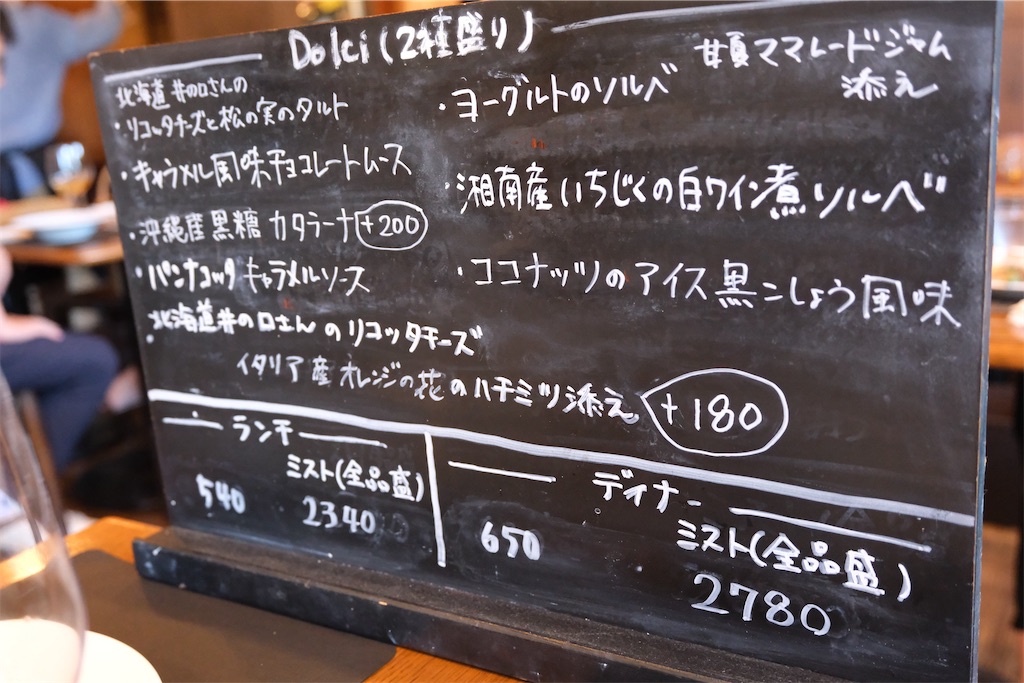 Dolci(2種盛り)
北海道 井の口さんの
・リコッタチーズと松の実のタルト
・キャラメル風味チョコレートムース
・沖縄産黒糖 カタラーナ +200
・パンナコッタ キャラメルソース
・北海道井の口さんのリコッタチーズ
イタリア産オレンジの花のハチミツ添え +180
甘夏ママレードジャム
添え
・ヨーグルトのソルベ
・湘南産いちじくの白ワイン煮ソルベ
・ココナッツのアイス黒こしょう風味
ランチ
ミスト(全品盛)
540 2340
ディナー
ミスト(全品盛)
650
2780